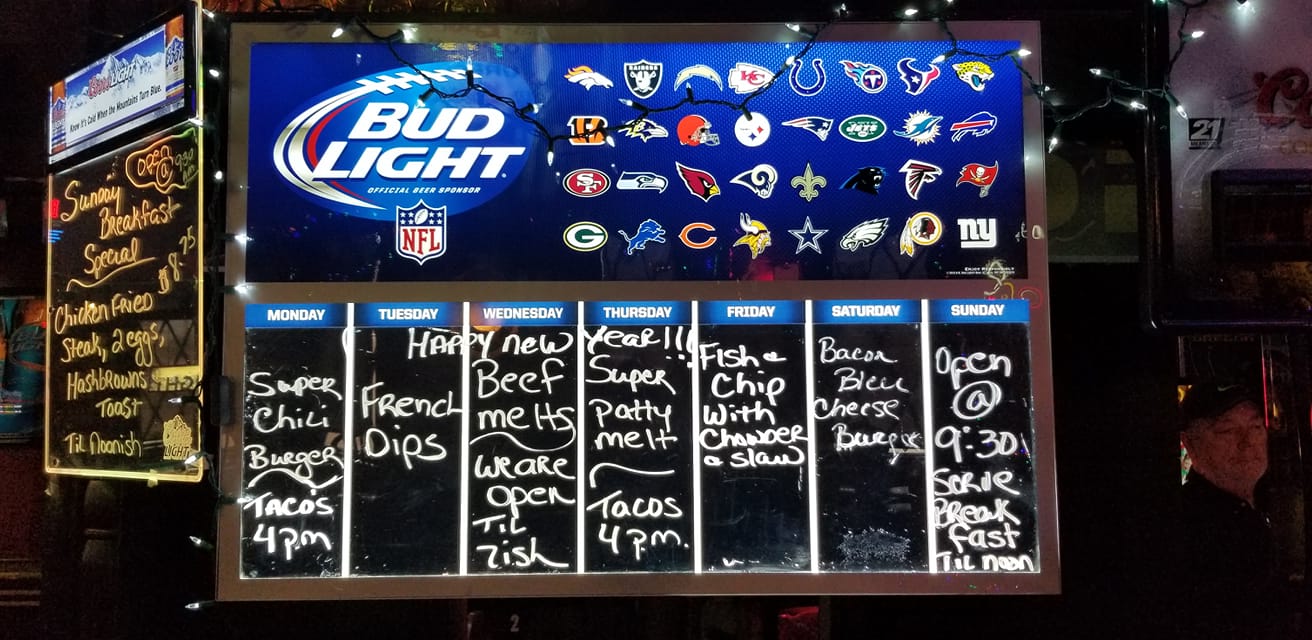 Coors LIGHT
Know It's Cold When the Mountains Turn Blue.
Open
@ 930
am
Sunday
Breakfast
Special
$8.25
Chicken Fried
Steak, 2 eggs,
Hashbrowns
Toast
Til Noonish
LIGHT
BUD
LIGHT.
OFFICIAL BEER SPONSOR
NFL
RAIDERS
KC
B
JETS
SF
G
C
ny
ENJOY RESPONSIBLY
21
MEANS 21
C
OREGON
MONDAY
TUESDAY
WEDNESDAY
THURSDAY
FRIDAY
SATURDAY
SUNDAY
HAPPY new Year!!!
Super
Chili
Burger
TACO'S
4 p.m
French
Dips
Beef
melts
We are
open
Til
7ish
Super
Patty
melt
Tacos
4 p.m.
Fish &
Chip
With
Chowder
& slaw
Bacon
Bleu
Cheese
Burger
Open
@
9:30
Serve
Break
fast
Til noon
2